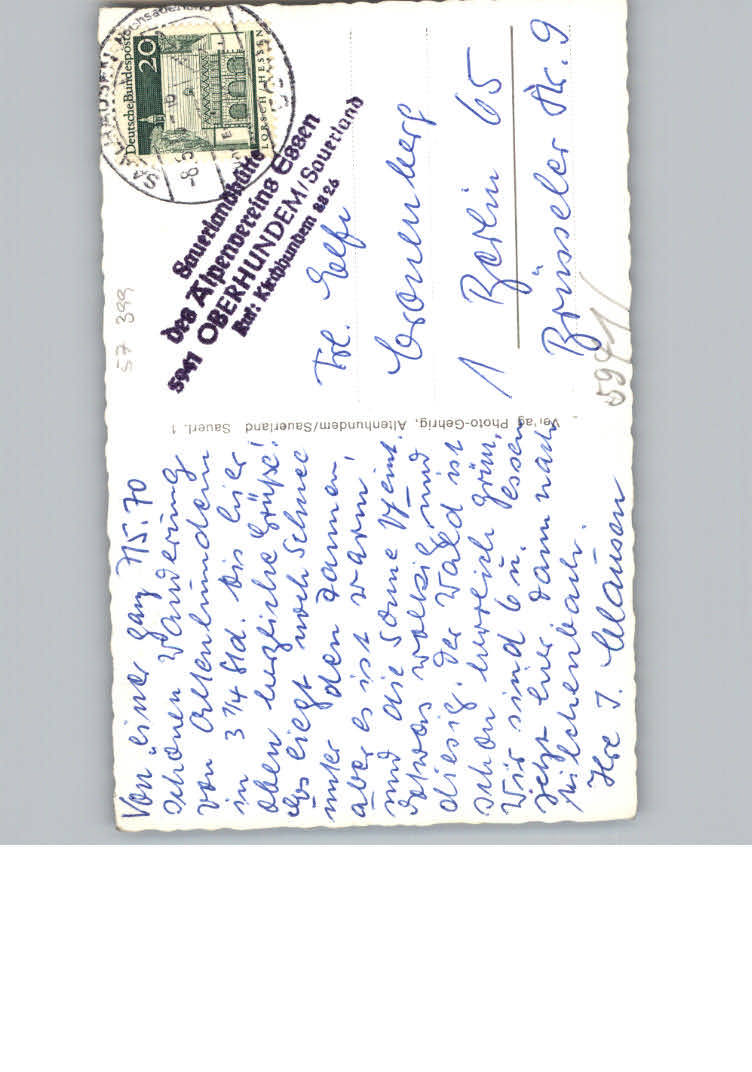 7/5.70
Von einer ganz
schönen Wanderung
von Altenhundem
in 3 1/4 Std. bis hier
oben herzliche Grüße!
Es liegt noch Schnee
unter den Tannen,
aber es ist warm,
und die Sonne scheint.
Etwas wolkig und
diesig. Der Wald ist
schon herrlich grün.
Wir sind 6 u. essen
jetzt hier dann nach
Ihre I. Clausen
Verlag Photo-Gehrig, Altenhundem/Sauerland Sauerl. 1
Deutsche Bundespost
20
LORSCH/HESSEN
Sauerlandhütte
des Alpenvereins Essen
5941 OBERHUNDEM/Sauerland
Ruf: Kirchhundem 8826
Frl. Elfi
Cronenberg
1 Berlin 65
Brüsseler Str. 9
57 399
5941/